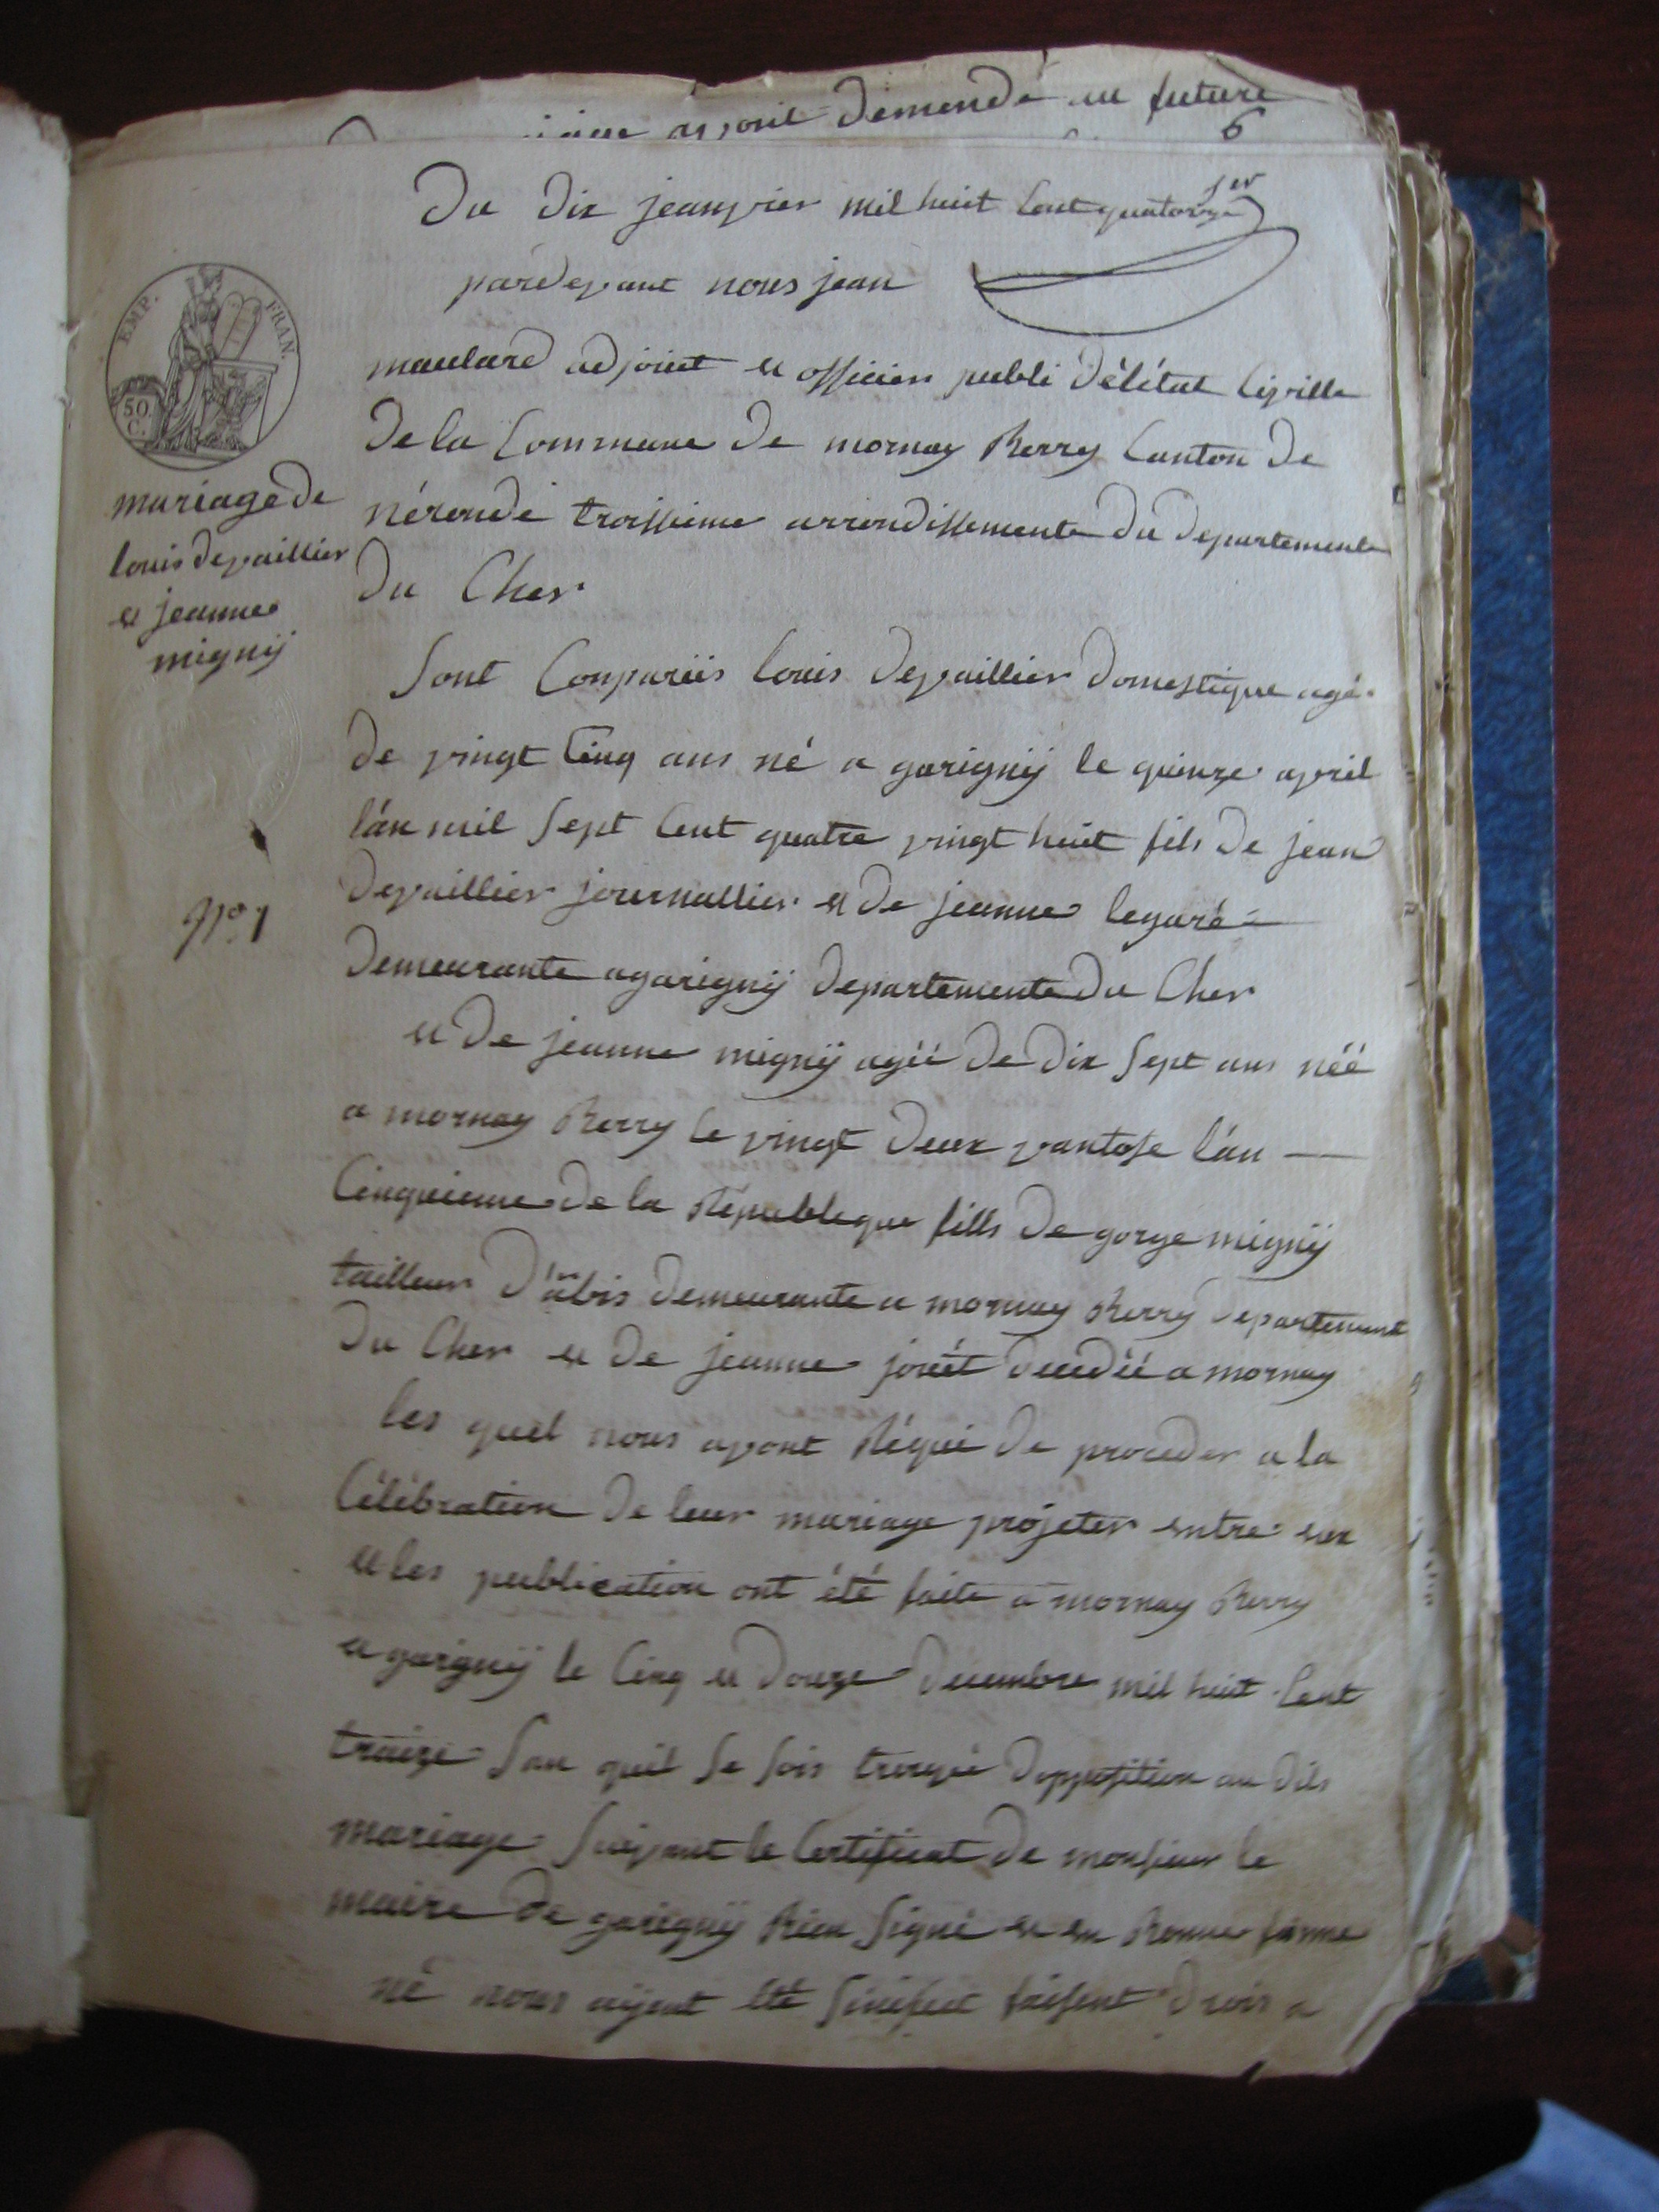 asont demende au future
6
Du dix jeanvier mil huit Cent quatorze
1er
pardevant nous jean
maulard adjoint et officier publi délétat Civille
De la Commune De mornay Berry Canton De
nérondé troissieme arrondissemente du departemente
Du Cher
EMP. FRAN.
50 C.
mariage de
louis devaillier
et jeanne
mignÿ
No 1
Sont Conparüs louis devaillier domestique agé
de vingt Cinq ans né a garignÿ le quinze avril
l'an mil Sept Cent quatre vingt huit fils de jean
devaillier journallier et de jeanne legaré
demeurante agarignÿ departemente du Cher
et de jeanne mignÿ agéé de dix Sept ans néé
a mornay Berry le vingt deux vantose l'an
Cinquieme de la Républeque fills de gorge mignÿ
tailleur d'abis demeurante a mornay Berry departement
du Cher et de jeanne jouét decedéé a mornay
les quel nous avont Réqui de proceder a la
Célébration de leur mariage projeter entre eux
et les publication ont été faite a mornay Berry
et garignÿ le Cinq et douze decembre mil huit Cent
traize San quil Se Sois trouvé dopposition au dits
mariage Suivant le Certificat de monsieur le
maire de garignÿ Bien Signé et en Bonne forme
né nous aÿent été Sinifieé faisent drois a